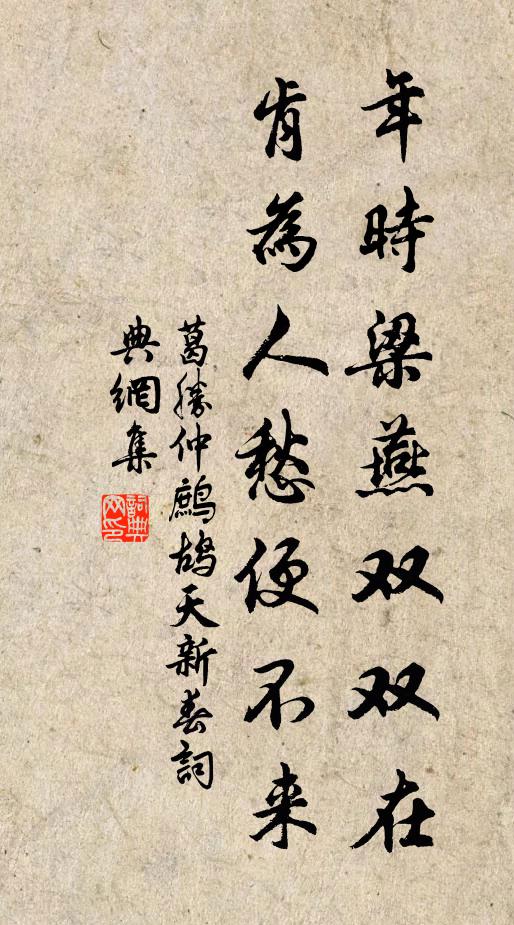 年時梁燕双双在
肯為人愁便不来
葛勝仲鹧鸪天新春詞
典網集
詞典网印